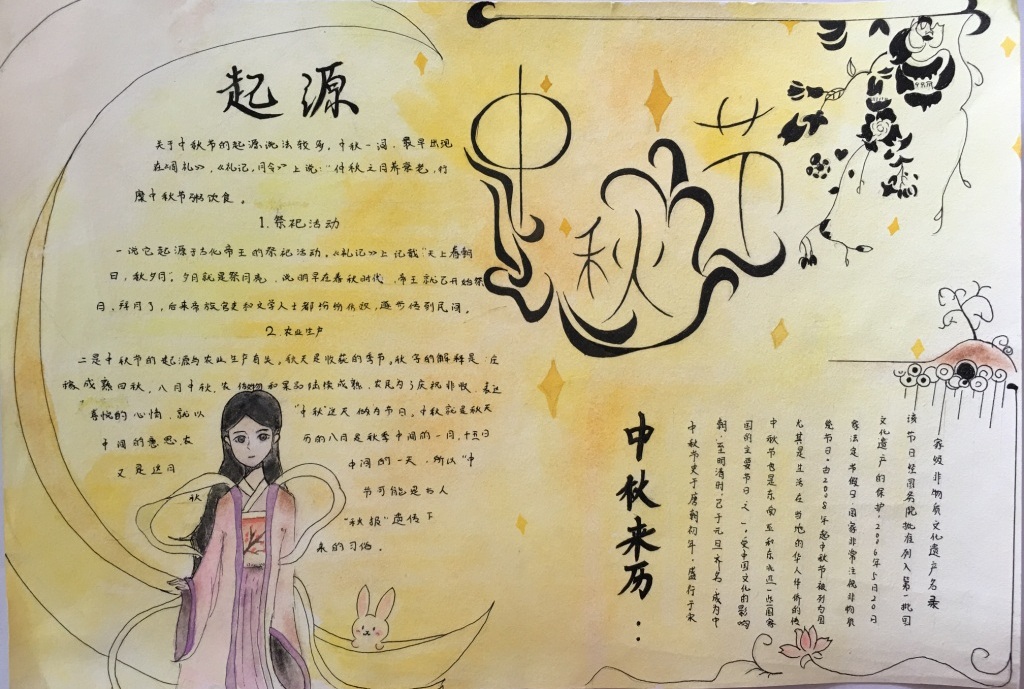 起源
关于中秋节的起源,说法较多。中秋一词,最早出现
在《周礼》,《礼记,月令》上说:"仲秋之月养衰老,行
糜中秋节粥饮食。
1.祭祀活动
一说它起源于古代帝王的祭祀活动。《礼记》上记载"天上春朝
日,秋夕月"。夕月就是祭月亮,说明早在春秋时代,帝王就已开始祭
月、拜月了,后来贵族官吏和文学人士都纷纷仿效,逐步传到民间。
2.农业生产
二是中秋节的起源与农业生产有关。秋天是收获的季节。秋字的解释是:庄
稼成熟曰秋。八月中秋,农作物和果品陆续成熟,农民为了庆祝丰收,表达
喜悦的心情,就以"中秋"这天做为节日。中秋就是秋天
中间的意思,农历的八月是秋季中间的一月,十五日
又是这月中间的一天,所以"中
秋节可能是古人
"秋报"遗传下
来的习俗。
中秋节
中秋来历:
中秋节史于唐朝初年,盛行于宋
朝,至明清时,已于元旦齐名,成为中
国的主要节日之一。受中国文化的影响
中秋节也是东南亚和东北亚一些国家
尤其是生活在当地的华人华侨的传
统节日。自2008年起中秋节被列为国
家法定节假日,国家非常注视非物质
文化遗产的保护,2006年5月20日
该节日经国务院批准列入第一批国
家级非物质文化遗产名录